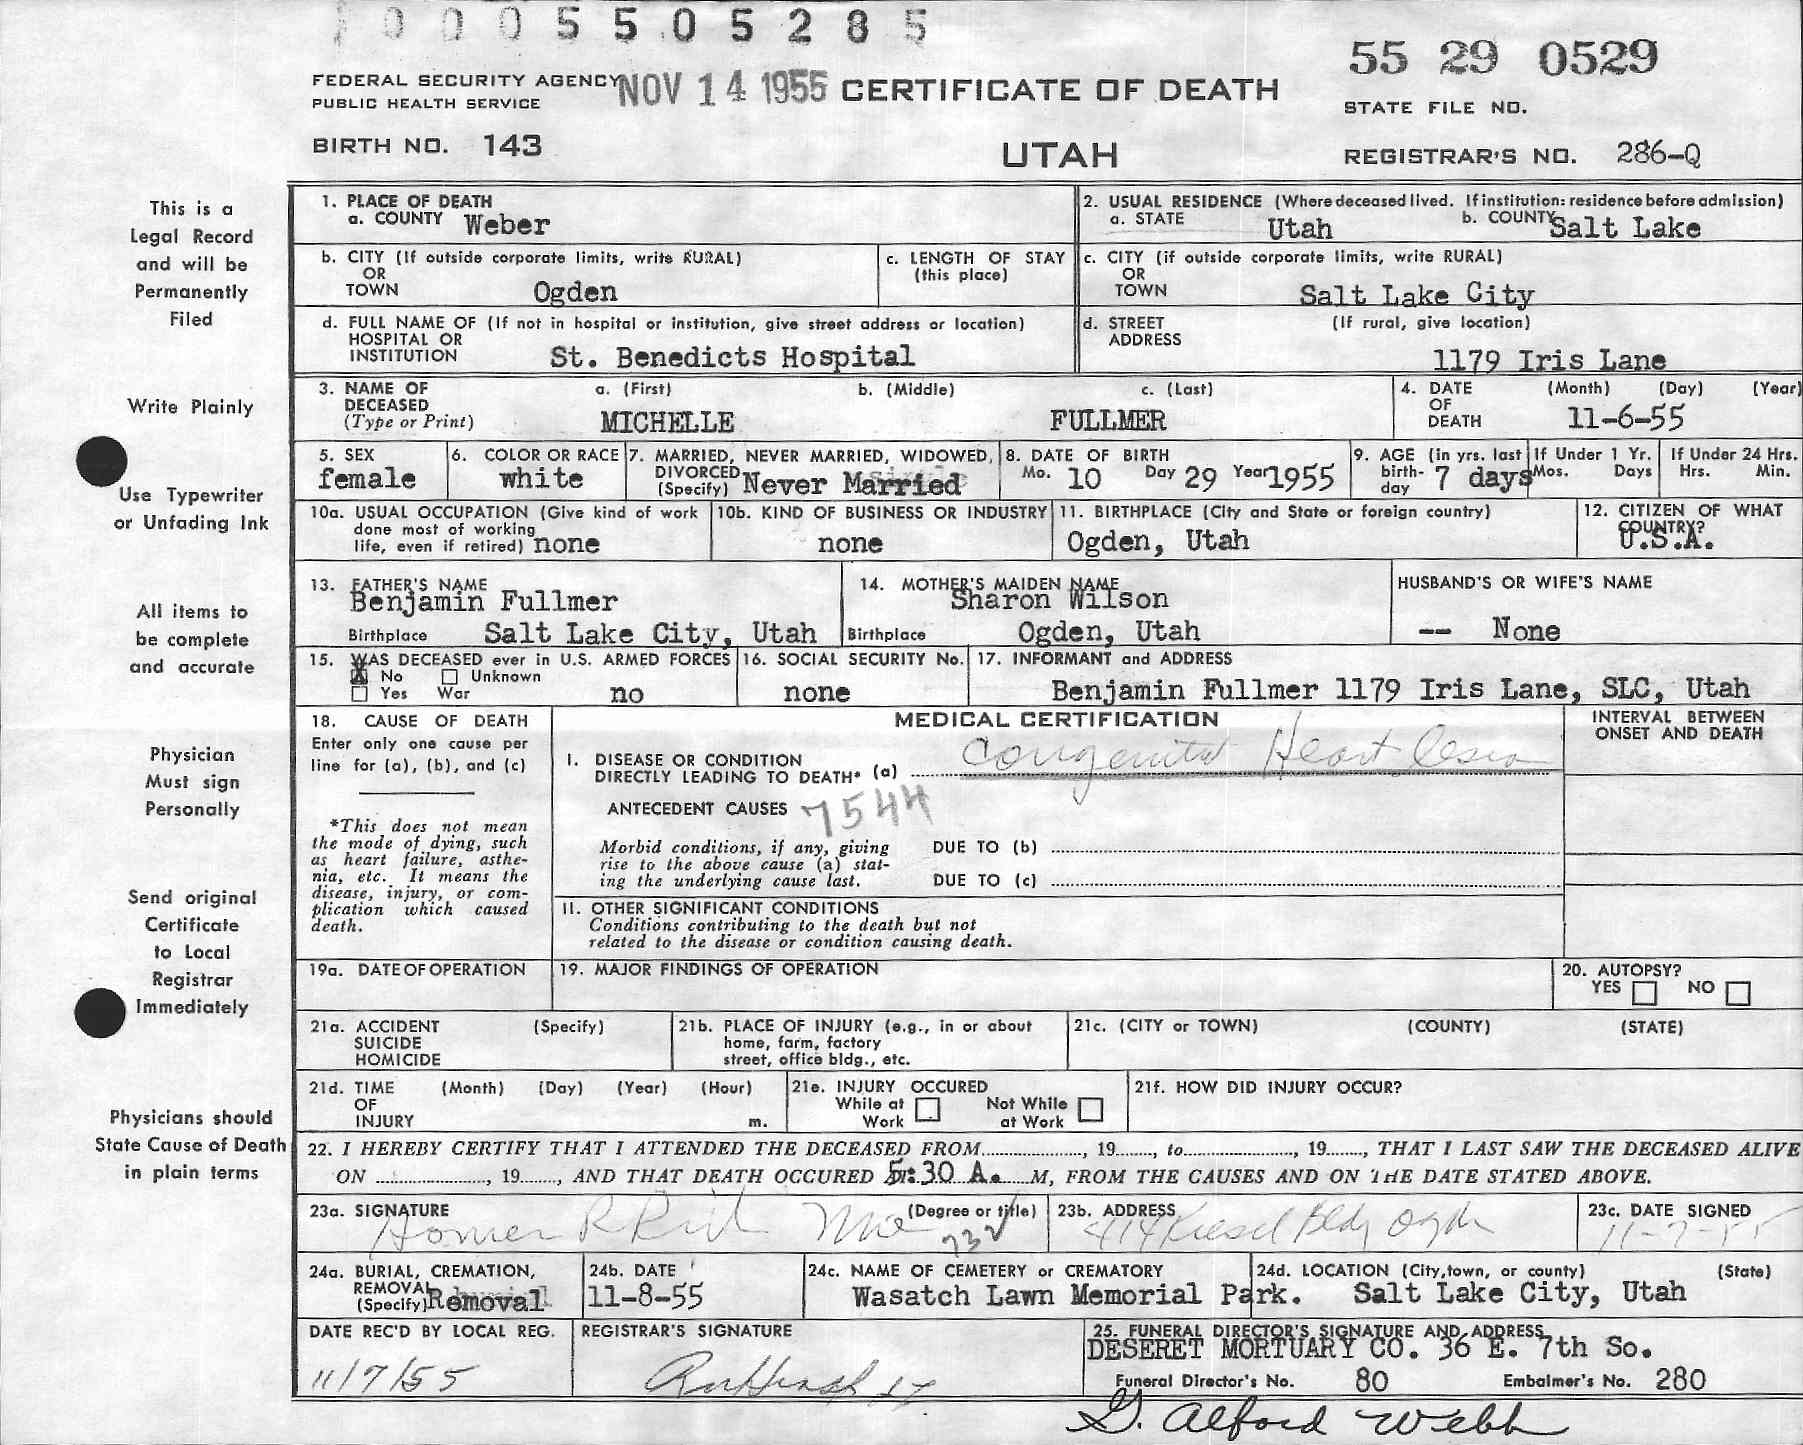 1 0 0 0 5 5 0 5 2 8 5
55 29 0529
FEDERAL SECURITY AGENCY NOV 14 1955 CERTIFICATE OF DEATH
PUBLIC HEALTH SERVICE
STATE FILE NO.
BIRTH NO. 143
UTAH
REGISTRAR'S NO. 286-Q
This is a
Legal Record
and will be
Permanently
Filed
Write Plainly
Use Typewriter
or Unfading Ink
All items to
be complete
and accurate
Physician
Must sign
Personally
Send original
Certificate
to Local
Registrar
Immediately
Physicians should
State Cause of Death
in plain terms
1. PLACE OF DEATH
a. COUNTY Weber
2. USUAL RESIDENCE (Where deceased lived. If institution: residence before admission)
a. STATE Utah b. COUNTY Salt Lake
b. CITY (If outside corporate limits, write RURAL)
OR
TOWN Ogden
c. LENGTH OF STAY
(this place)
c. CITY (if outside corporate limits, write RURAL)
OR
TOWN Salt Lake City
d. FULL NAME OF (If not in hospital or institution, give street address or location)
HOSPITAL OR
INSTITUTION St. Benedicts Hospital
d. STREET (If rural, give location)
ADDRESS
1179 Iris Lane
3. NAME OF a. (First) b. (Middle) c. (Last)
DECEASED
(Type or Print) MICHELLE FULLMER
4. DATE (Month) (Day) (Year)
OF
DEATH 11-6-55
5. SEX
female
6. COLOR OR RACE
white
7. MARRIED, NEVER MARRIED, WIDOWED,
DIVORCED
(Specify) Never Married
8. DATE OF BIRTH
Mo. 10 Day 29 Year 1955
9. AGE (in yrs. last
birth-
day 7 days
If Under 1 Yr.
Mos. Days
If Under 24 Hrs.
Hrs. Min.
10a. USUAL OCCUPATION (Give kind of work
done most of working
life, even if retired) none
10b. KIND OF BUSINESS OR INDUSTRY
none
11. BIRTHPLACE (City and State or foreign country)
Ogden, Utah
12. CITIZEN OF WHAT
COUNTRY?
U.S.A.
13. FATHER'S NAME
Benjamin Fullmer
Birthplace Salt Lake City, Utah
14. MOTHER'S MAIDEN NAME
Sharon Wilson
Birthplace Ogden, Utah
HUSBAND'S OR WIFE'S NAME
-- None
15. WAS DECEASED ever in U.S. ARMED FORCES
X No Unknown
Yes War no
16. SOCIAL SECURITY No.
none
17. INFORMANT and ADDRESS
Benjamin Fullmer 1179 Iris Lane, SLC, Utah
18. CAUSE OF DEATH
Enter only one cause per
line for (a), (b), and (c)
*This does not mean
the mode of dying, such
as heart failure, asthe-
nia, etc. It means the
disease, injury, or com-
plication which caused
death.
MEDICAL CERTIFICATION
I. DISEASE OR CONDITION
DIRECTLY LEADING TO DEATH* (a) Congenital Heart lesion
ANTECEDENT CAUSES 7544
Morbid conditions, if any, giving
rise to the above cause (a) stat-
ing the underlying cause last.
DUE TO (b)
DUE TO (c)
II. OTHER SIGNIFICANT CONDITIONS
Conditions contributing to the death but not
related to the disease or condition causing death.
INTERVAL BETWEEN
ONSET AND DEATH
19a. DATE OF OPERATION
19. MAJOR FINDINGS OF OPERATION
20. AUTOPSY?
YES NO
21a. ACCIDENT (Specify)
SUICIDE
HOMICIDE
21b. PLACE OF INJURY (e.g., in or about
home, farm, factory
street, office bldg., etc.
21c. (CITY or TOWN) (COUNTY) (STATE)
21d. TIME (Month) (Day) (Year) (Hour)
OF
INJURY m.
21e. INJURY OCCURED
While at Not While
Work at Work
21f. HOW DID INJURY OCCUR?
22. I HEREBY CERTIFY THAT I ATTENDED THE DECEASED FROM..............., 19......., to..............., 19......., THAT I LAST SAW THE DECEASED ALIVE
ON ..............., 19......., AND THAT DEATH OCCURED 5:30 A. M, FROM THE CAUSES AND ON THE DATE STATED ABOVE.
23a. SIGNATURE (Degree or title)
Homer R Rich MD 732
23b. ADDRESS
414 Kiesel Bldg Ogden
23c. DATE SIGNED
11-7-55
24a. BURIAL, CREMATION,
REMOVAL
(Specify) Removal
24b. DATE
11-8-55
24c. NAME OF CEMETERY or CREMATORY
Wasatch Lawn Memorial Park.
24d. LOCATION (City, town, or county) (State)
Salt Lake City, Utah
DATE REC'D BY LOCAL REG.
11/7/55
REGISTRAR'S SIGNATURE
25. FUNERAL DIRECTOR'S SIGNATURE AND ADDRESS
DESERET MORTUARY CO. 36 E. 7th So.
Funeral Director's No. 80 Embalmer's No. 280
G. Alford Webb